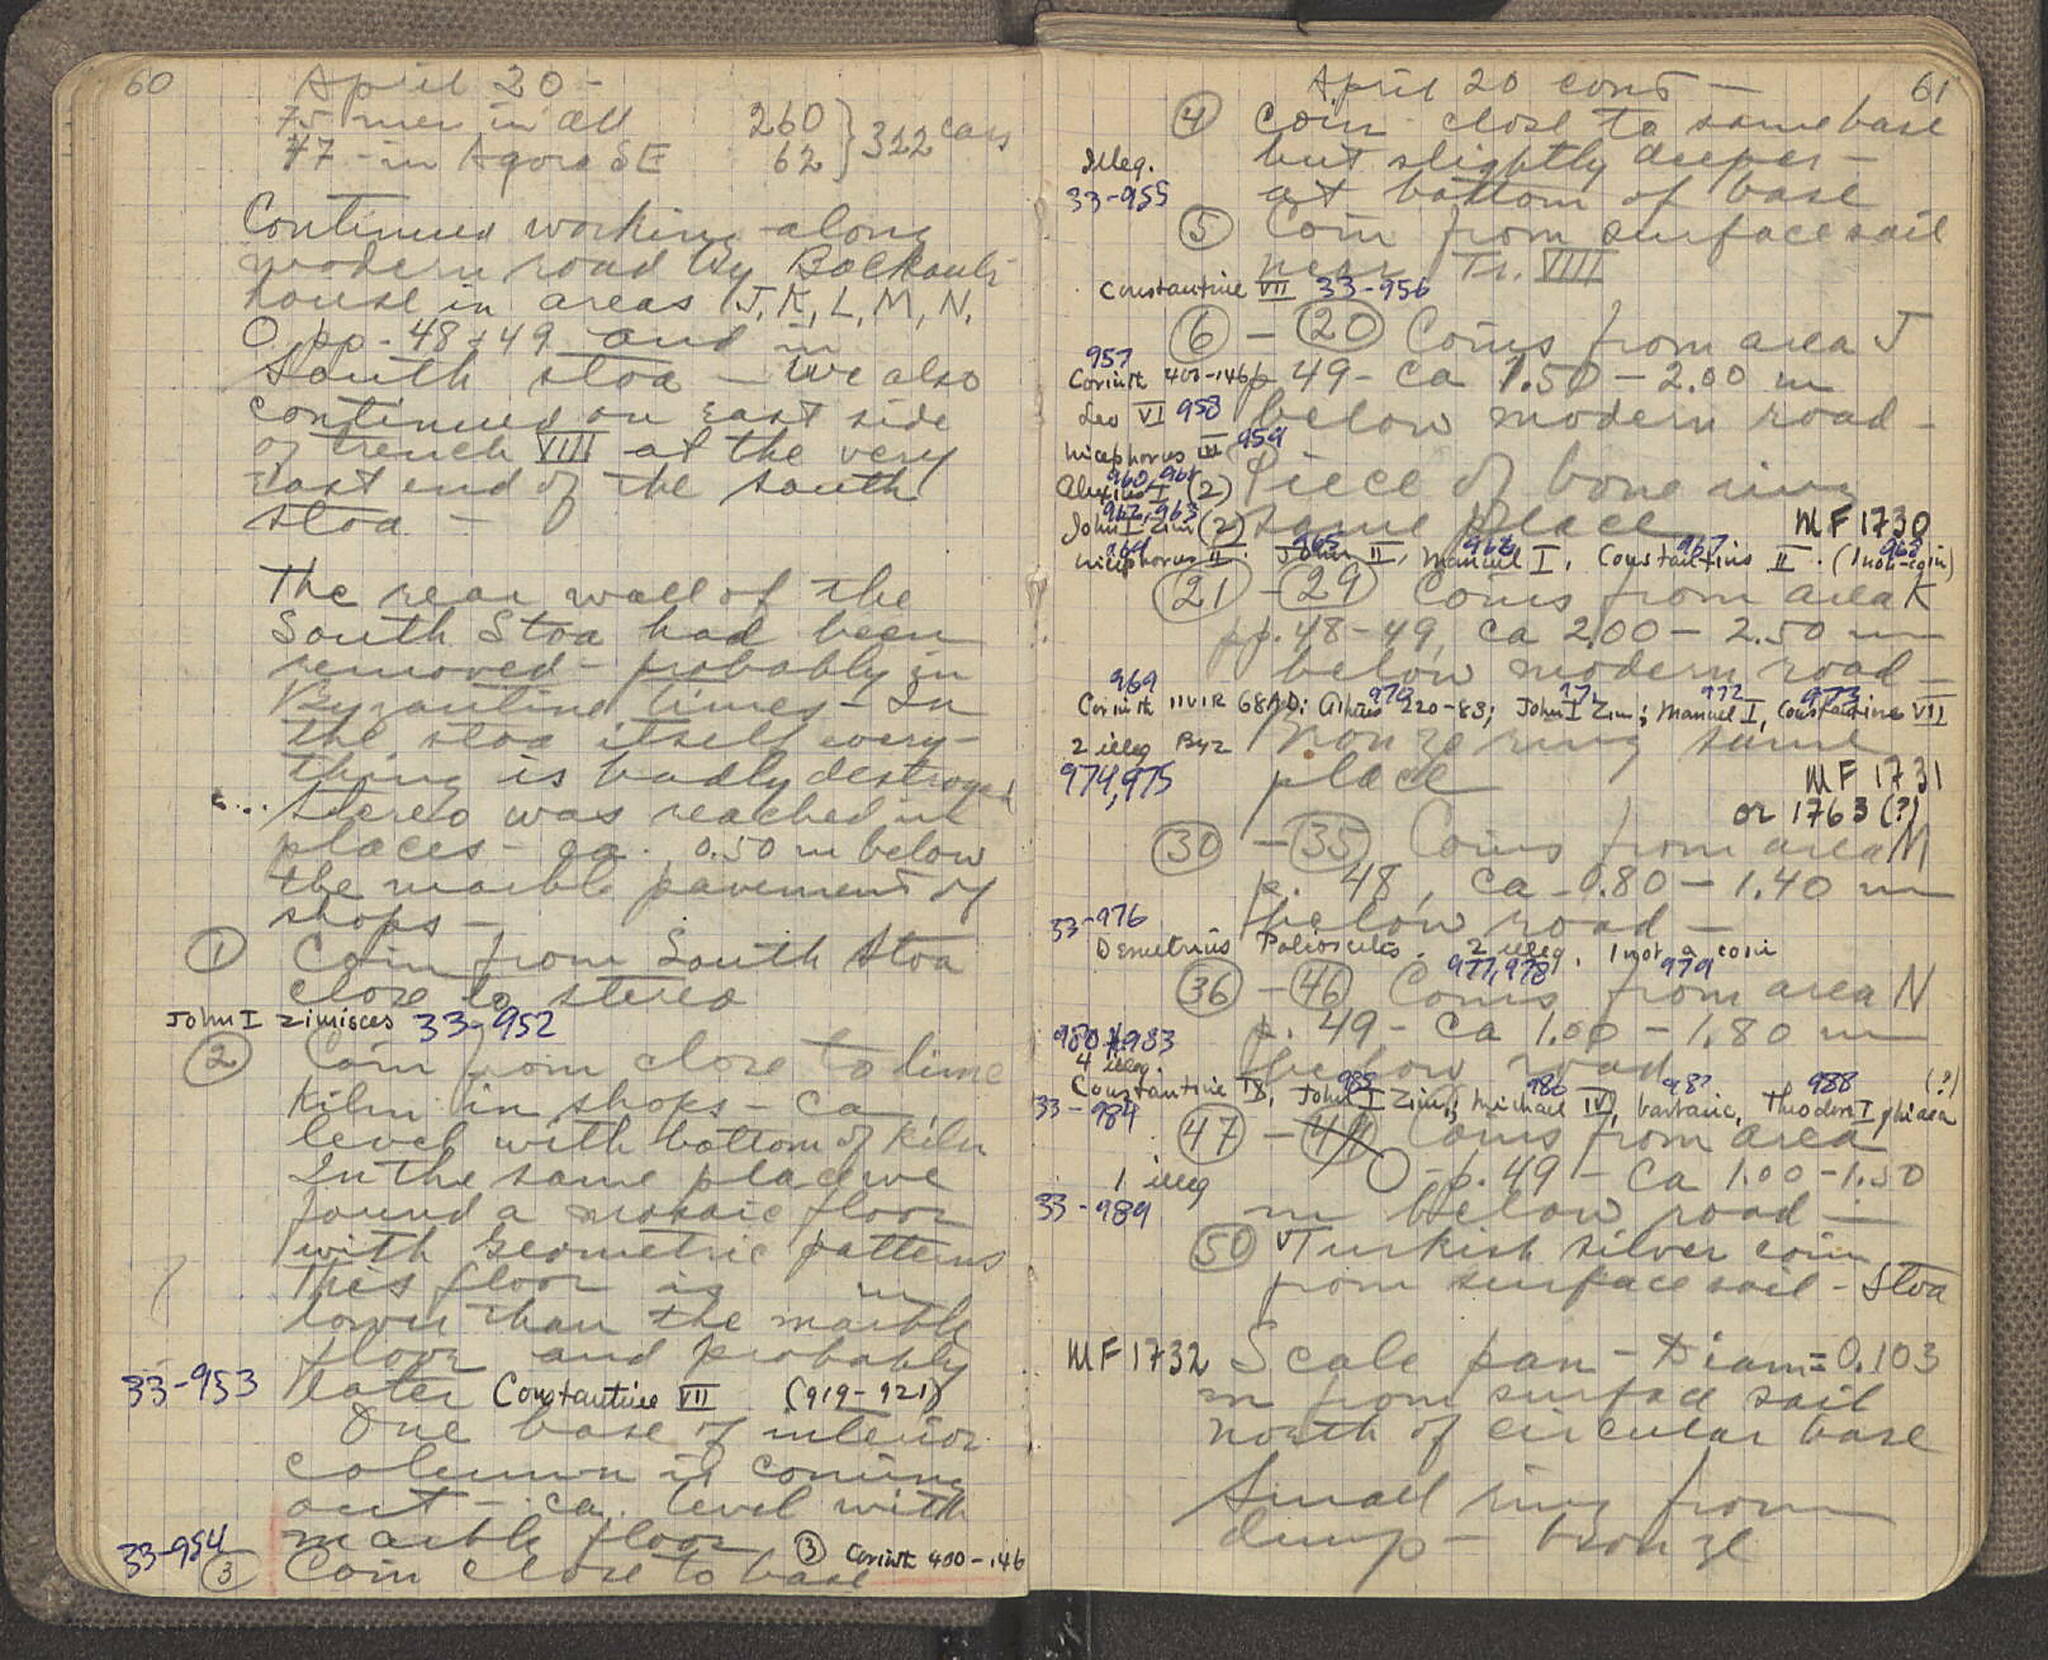 60
April 20 -
75 men in all 260
47 - in Agora SE 62 } 322 cars
Continued working along
modern road by
house in areas J, K, L, M, N,
O pp. 48 + 49 and in
South stoa - We also
continued on east side
of trench VIIII at the very
east end of the south
stoa -
The rear wall of the
South Stoa had been
removed - probably in
Byzantine times - In
the stoa itself every-
thing is badly destroyed
stereo was reached in
places - ca. 0.50 m below
the marble pavement of
shops -
1 Coin from South Stoa
close to stereo
John I Zimisces 33-952
2 Coin from close to lime
kiln in shops - ca.
level with bottom of kiln
In the same place we
found a mosaic floor
with geometric patterns
This floor is m
lower than the marble
floor and probably
33-953 later Constantine VII (919-921)
One base of interior
column is coming
out - ca. level with
marble floor 3 Corinth 400-146
33-954
3 Coin close to base
61
April 20 cont -
4 Coin close to same base
but slightly deeper -
Illeg.
33-955 at bottom of base
5 Coin from surface soil
near Tr. VIIII
Constantine VII 33-956
6 - 20 Coins from area J
957
Corinth 400-146 p 49 - ca 1.50 - 2.00 m
Leo VI 958 below modern road -
Nicephorus III 959
960, 961
Alexius I (2) Piece of bone ring
962, 963
John I Zim (2) same place MF 1730
964 965 966 967 968
Nicephorus II. John II, Manuel I, Constantius II. (1 non-coin)
21 - 29 Coins from area K
pp. 48-49, ca 2.00 - 2.50 m
below modern road -
969 970 971 972 973
Corinth IIVIR 68 AD; Athens 220-83; John I Zim; Manuel I, Constantine VII
2 illeg Byz Bronze ring same
974, 975 place MF 1731
or 1763 (?)
30 - 35 Coins from area M
p. 48, ca 0.80 - 1.40 m
33-976 below road -
Demetrius Poliorcetes. 2 illeg, 1 not a coin
977, 978 979
36 - 46 Coins from area N
p. 49 - ca 1.00 - 1.80 m
980-983
4 illeg. below road
985 986 987 988 (?)
Constantine IX, John I Zim; Michael IV, barbaric, Theodore I
33-984
47 - Coins from area
O - p. 49 - ca 1.00 - 1.50
1 illeg
33-989 m below road -
50 Turkish silver coin
from surface soil - Stoa
MF 1732 Scale pan - Diam = 0.103
m from surface soil
north of circular base
Small ring from
dump - bronze